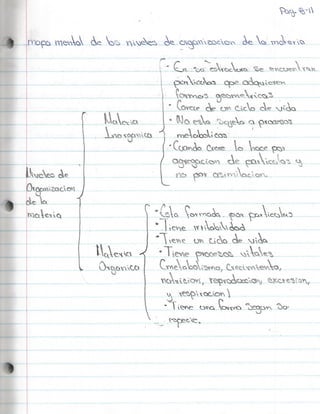 Pag. 8-11
mapa mental de los niveles de organizacion de la materia
- En su estructura se encuentran
particulas que adquieren
formas geometricas
- Carece de un ciclo de vida
- No esta sujeto a procesos
metabolicos
- Cuando crece lo hace por
agregacion de particulas y
no por asimilacion.
Materia
Inorganica
Niveles de
Organizacion
de la
materia
- Esta formada por particulas
- Tiene irritabilidad
- Tiene un ciclo de vida
- Tiene procesos vitales
(metabolismo, Crecimiento,
nutricion, reproduccion, excresion,
y respiracion)
- Tiene una forma segun su
especie.
Materia
Organica